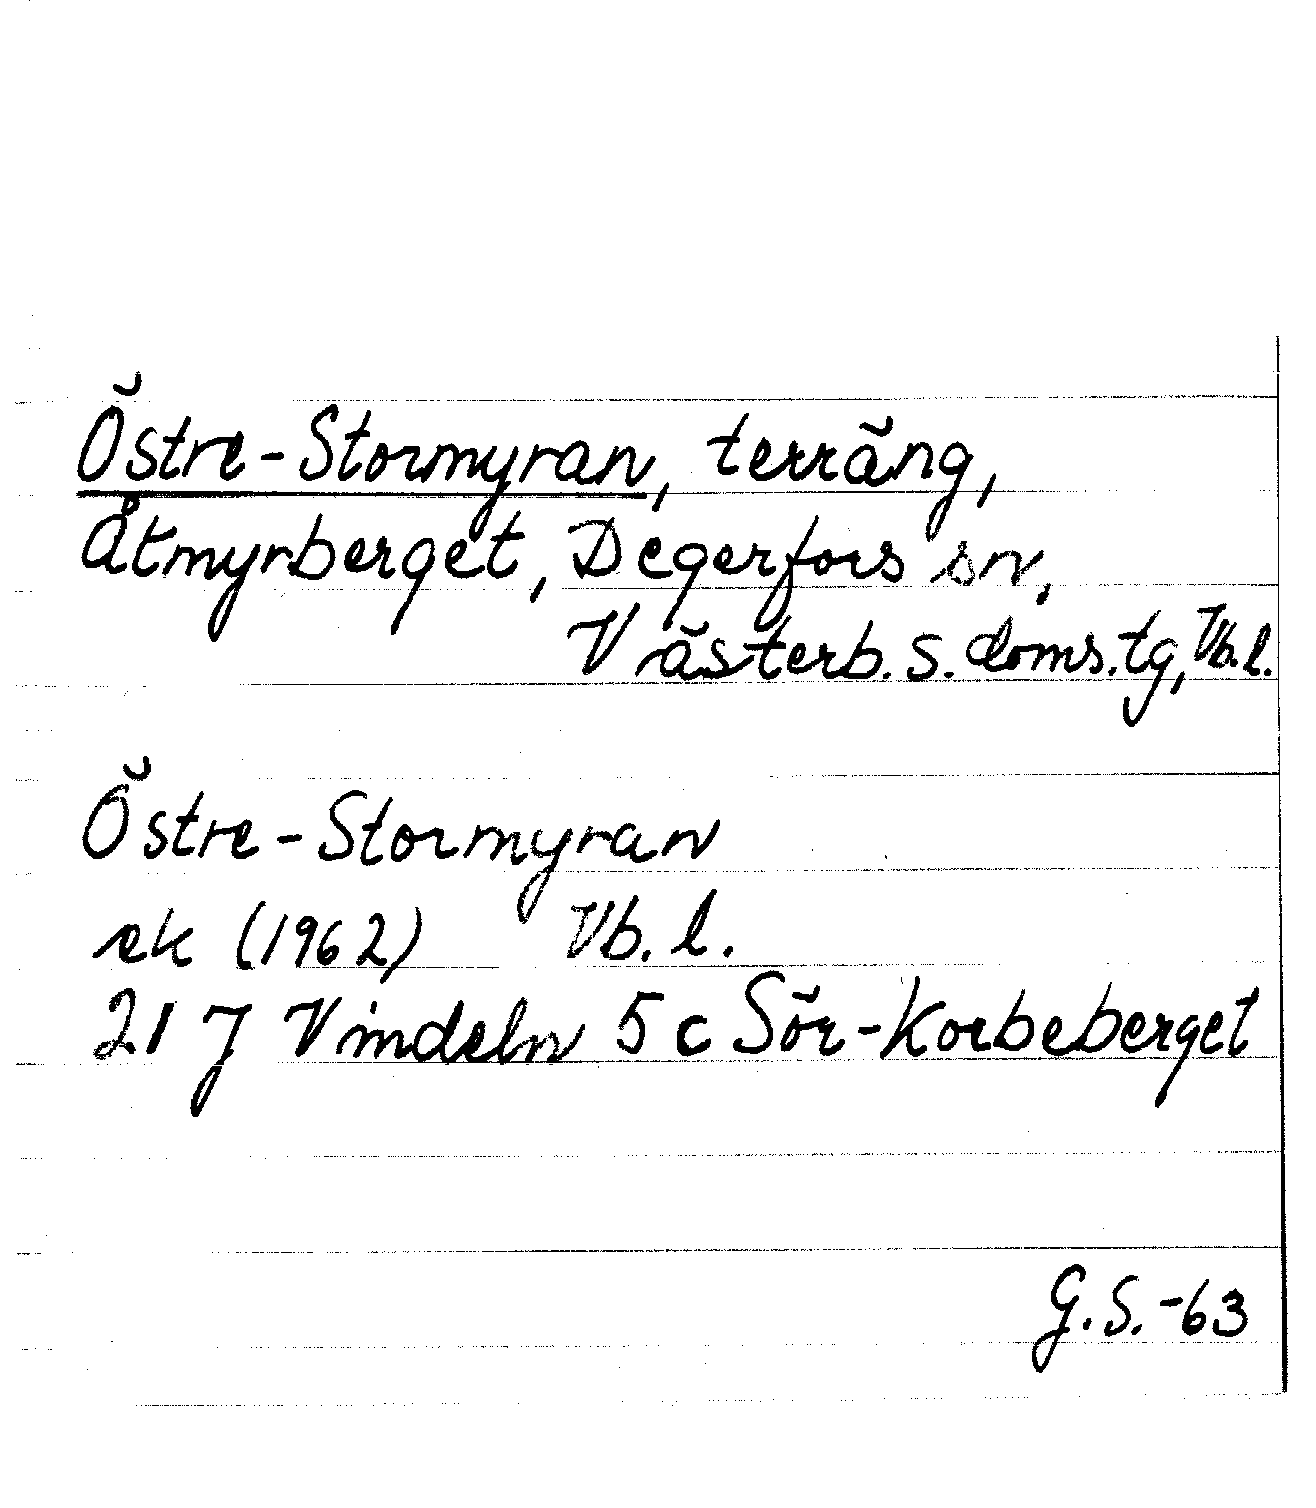 Östre-Stormyran, terräng,
Åtmyrberget, Degerfors sn,
Västerb. s. doms.tg, Vb.l.
Östre-Stormyran
ek (1962) Vb. l.
21 J Vindeln 5 c Sör-Korbeberget
G.S.-63